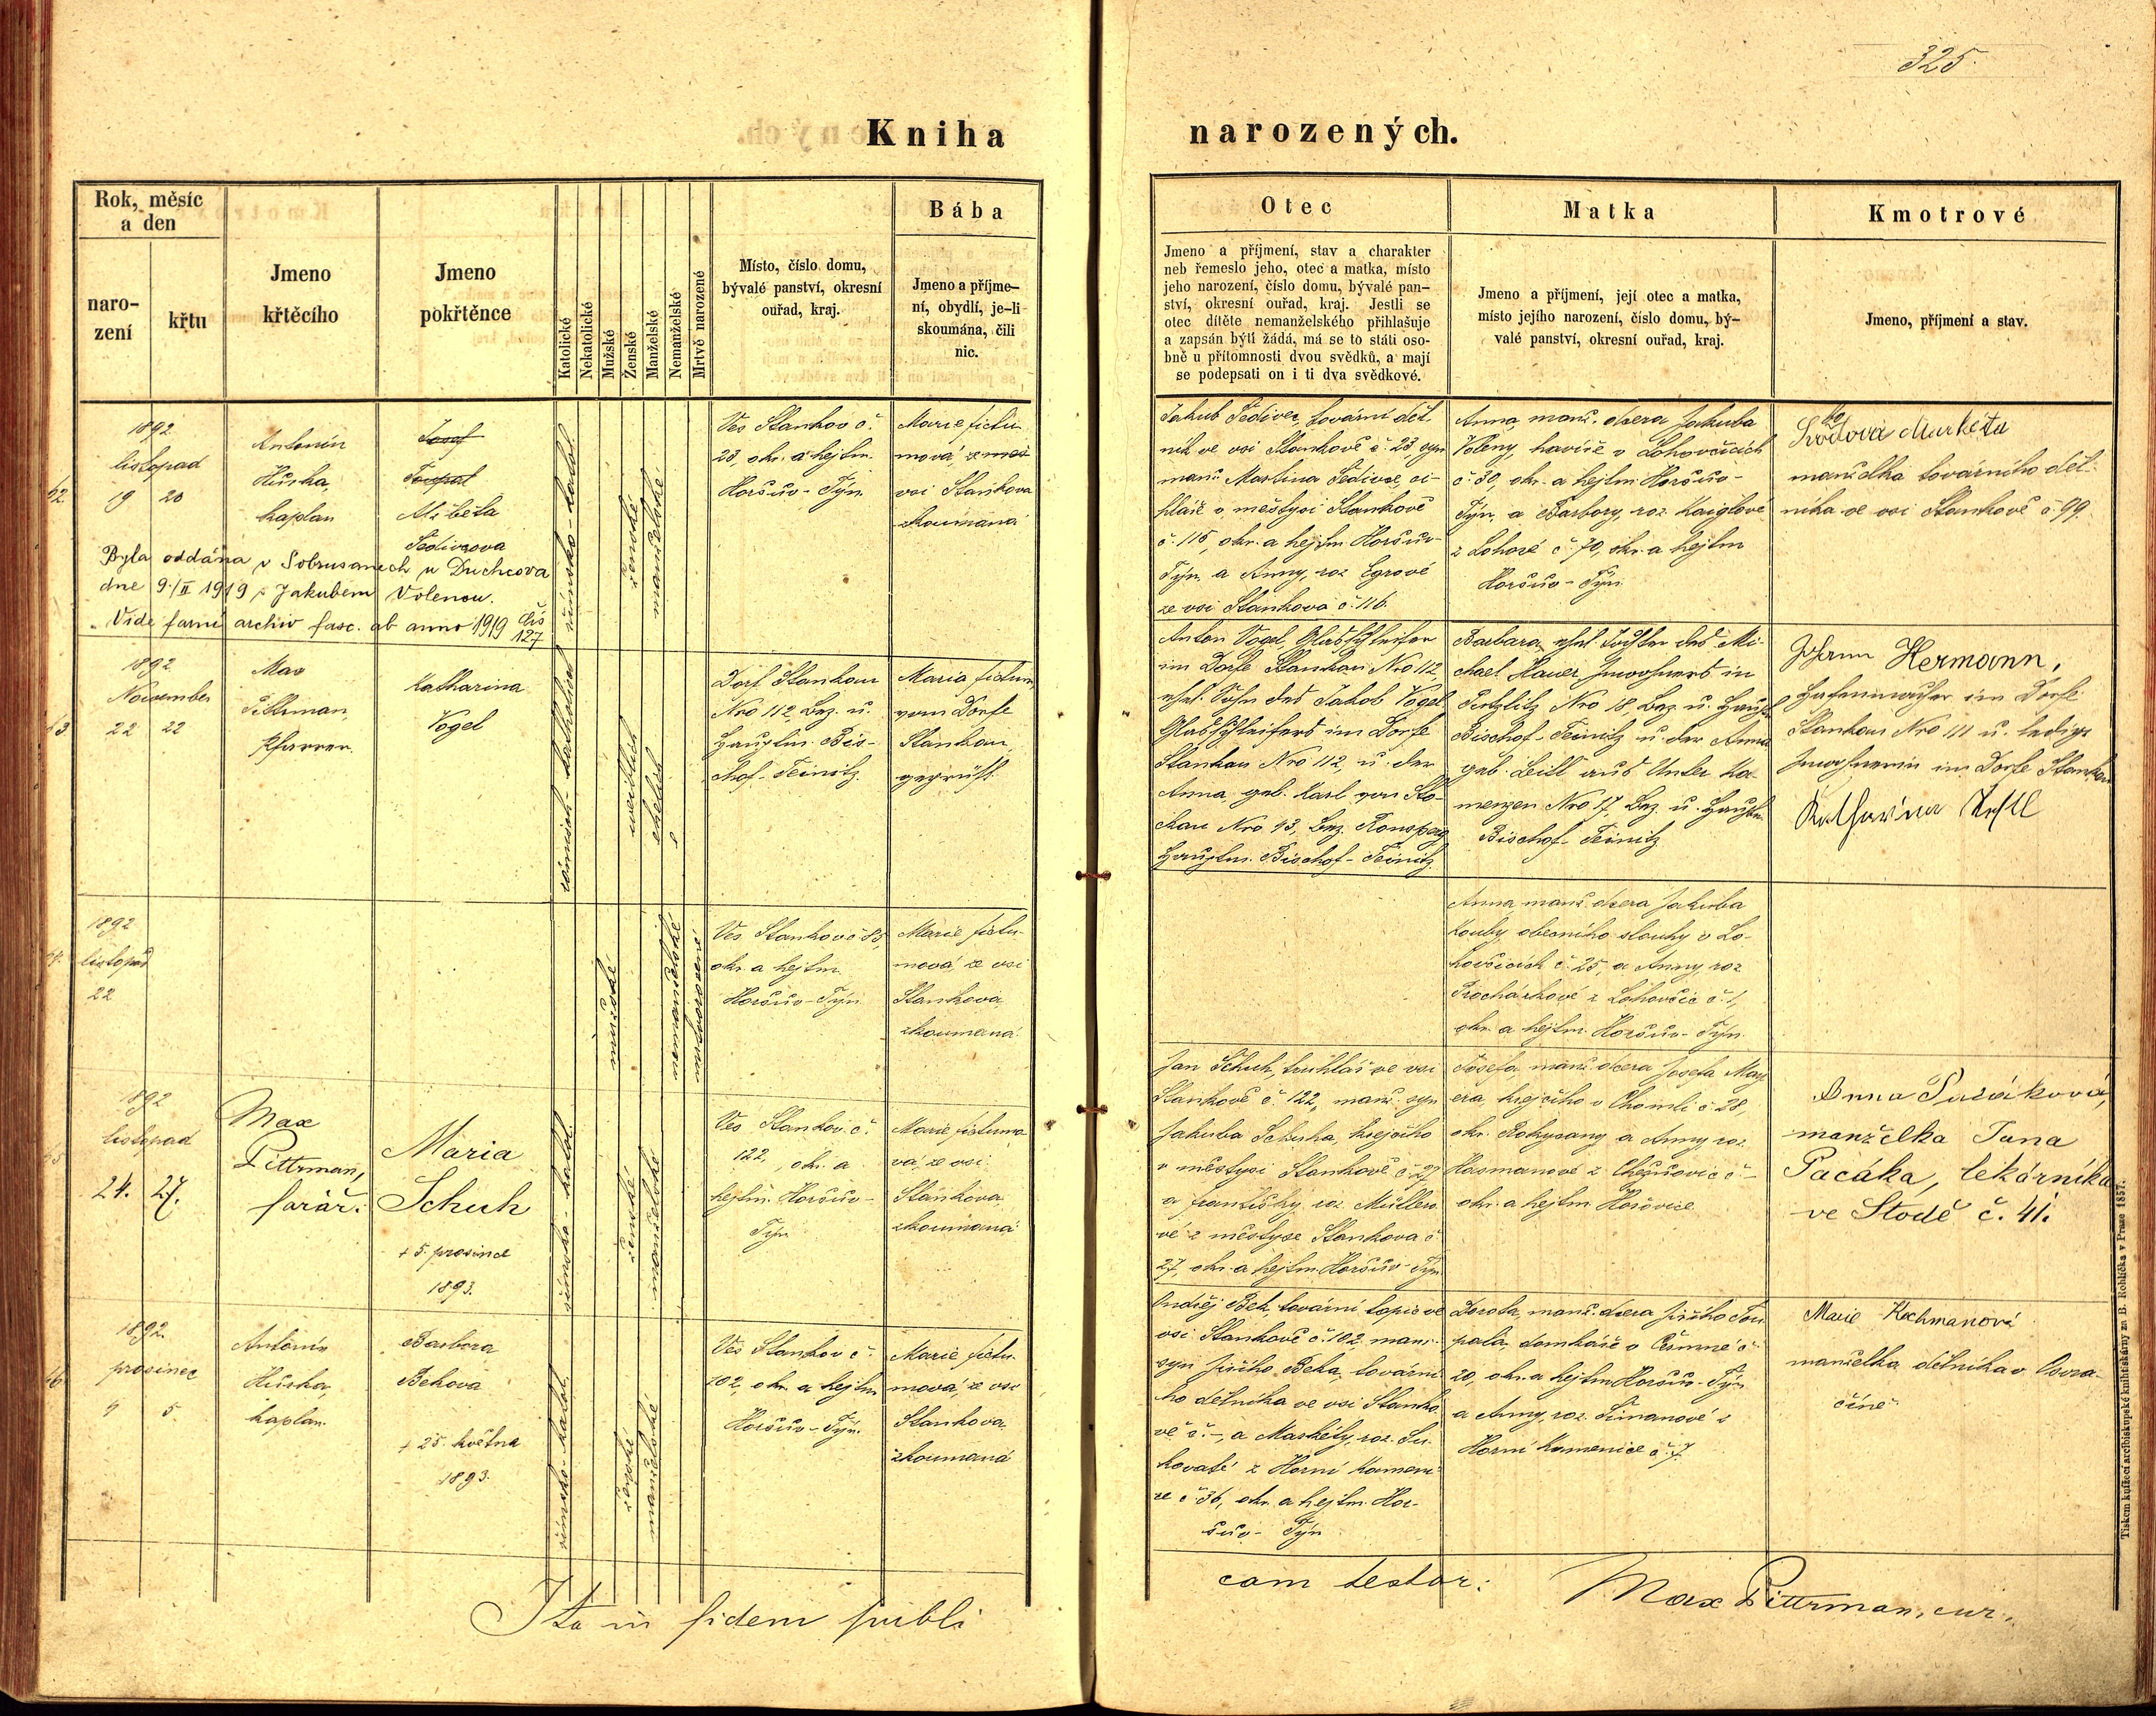 325.
Kniha narozených.
Rok, měsíc a den
narození
křtu
Jmeno křtěcího
Jmeno pokřtěnce
Katolické
Nekatolické
Mužské
Ženské
Manželské
Nemanželské
Mrtvě narozené
Místo, číslo domu,
bývalé panství, okresní
ouřad, kraj.
Bába
Jmeno a příjme-
ní, obydlí, je-li
skoumána, čili
nic.
Otec
Jmeno a příjmení, stav a charakter
neb řemeslo jeho, otec a matka, místo
jeho narození, číslo domu, bývalé pan-
ství, okresní ouřad, kraj. Jestli se
otec dítěte nemanželského přihlašuje
a zapsán býti žádá, má se to státi oso-
bně u přítomnosti dvou svědků, a mají
se podepsati on i ti dva svědkové.
Matka
Jmeno a příjmení, její otec a matka,
místo jejího narození, číslo domu, bý-
valé panství, okresní ouřad, kraj.
Kmotrové
Jmeno, příjmení a stav.
1892
listopad
19 20
Antonín
Hůrka,
kaplan
Josef
Toupal
Alžběta
Šedivcova
římsko-katol.
ženské
manželské
Ves Stankov č.
23, okr. a hejtm.
Horšův-Týn
Marie fictu
mová, ze
vsi Stankova
zkoumaná
Jakub Šedivec, tovární děl
ník ve vsi Stankově č. 23, syn
manž. Martina Šedivce, ci-
hláře v městysi Stankově
č. 115, okr. a hejtm. Horšův-
Týn, a Anny, roz. Egrové
ze vsi Stankova č. 116.
Anna, manž. dcera Jakuba
Voleny, havíře v Lohovčicích
č. 30, okr. a hejtm. Horšův-
Týn, a Barbory, roz. Kaiglové
z Lohové č. 70, okr. a hejtm
Horšův-Týn
Markéta
manželka továrního děl-
níka ve vsi Stankově č. 99.
Byla oddána v Sobrusanech u Duchcova
dne 9./II 1919 s Jakubem Volenou.
Vide farní archiv fasc. ab anno 1919 čís 127
1892
November
22 22
Max
Pittrman,
Pfarrer.
Katharina
Vogel
römisch-katholisch
weiblich
ehelich
Dorf Stankau
Nro 112, Bez. u.
Hauptm. Bis-
chof-Teinitz
Maria fictum
vom Dorfe
Stankau,
geprüft.
Anton Vogel, Glasschleifer
im Dorfe Stankau Nro 112,
ehel. Sohn des Jakob Vogel
Glasschleifers im Dorfe
Stankau Nro 112, u. der
Anna, geb. Karl von Sto-
ckau Nro 43, Bez. Ronsperg
Hauptm. Bischof-Teinitz.
Barbara, ehel. Tochter des Mi-
chael Hauer, Inwohners in
Nro 18, Bez. u. Hauptm
Bischof-Teinitz u. der Anna
geb. Leitl aus Unter Ka-
menzen Nro 17, Bez. u. Hauptm.
Bischof-Teinitz
Johann Hermann,
Hafenmacher im Dorfe
Stankau Nro 111 u. ledige
Inwohnerin im Dorfe Stankau
Katharina
1892
listopad
22
mužské
nemanželské
mrtvorozené
Ves Stankov č 85,
okr. a hejtm.
Horšův-Týn
Marie fictu-
mová, ze vsi
Stankova,
zkoumaná.
Anna, manž. dcera Jakuba
Kouby, obecního sluhy v Lo-
hovčicích č. 25, a Anny, roz
Procházkové z Lohovčic č. 1,
okr. a hejtm. Horšův-Týn
1892
listopad
24. 27.
Max
Pittrman,
farář.
Maria
Schuh
+ 5. prosince
1893.
římsko-katol.
ženské
manželské
Ves Stankov č.
122, okr. a
hejtm. Horšův-
Týn
Marie fictumo
vá, ze vsi
Stankova,
zkoumaná
Jan Schuh, truhlář ve vsi
Stankově č. 122, manž. syn
Jakuba Schuha, krejčího
v městysi Stankově č. 27
a Františky, roz. Müllero
vé z městyse Stankova č
27, okr. a hejtm. Horšův-Týn
Josefa, manž. dcera Josefa May
era, krejčího v Chomli č 28,
okr. Rokycany a Anny, roz.
Hasmanové z č -
okr. a hejtm. Hořovice
Anna Pacáková,
manželka Jana
Pacáka, lékárníka
ve Stodě č. 41.
1892.
prosinec
4 5.
Antonín
Hůrka,
kaplan
Barbora
Behova
+ 25. května
1893.
římsko-katol.
ženské
manželské
Ves Stankov č.
102, okr. a hejtm
Horšův-Týn.
Marie fictu-
mová, ze vsi
Stankova,
zkoumaná
Ondřej Beh, tovární topič ve
vsi Stankově č. 102, manž.
syn Jiřího Beha, tovární
ho dělníka ve vsi Stanko
vě č. -, a Markéty, roz. Su-
kovaté z Horní Kameni
ce č 36, okr. a hejtm. Hor-
šův-Týn
Dorota, manž. dcera Jiřího Tou
pala, domkáře v Čermné č
20, okr. a hejtm Horšův-Týn
a Anny, roz. Šimanové z
Horní Kamenice č. 7.
Marie Kochmanová
manželka dělníka v Osvra-
číně
Ita in fidem publi
cam testor:
Max Pittrman, cur.
Tiskem knížecí arcibiskupské knihtiskárny za B. Rohlíčka v Praze 1857.